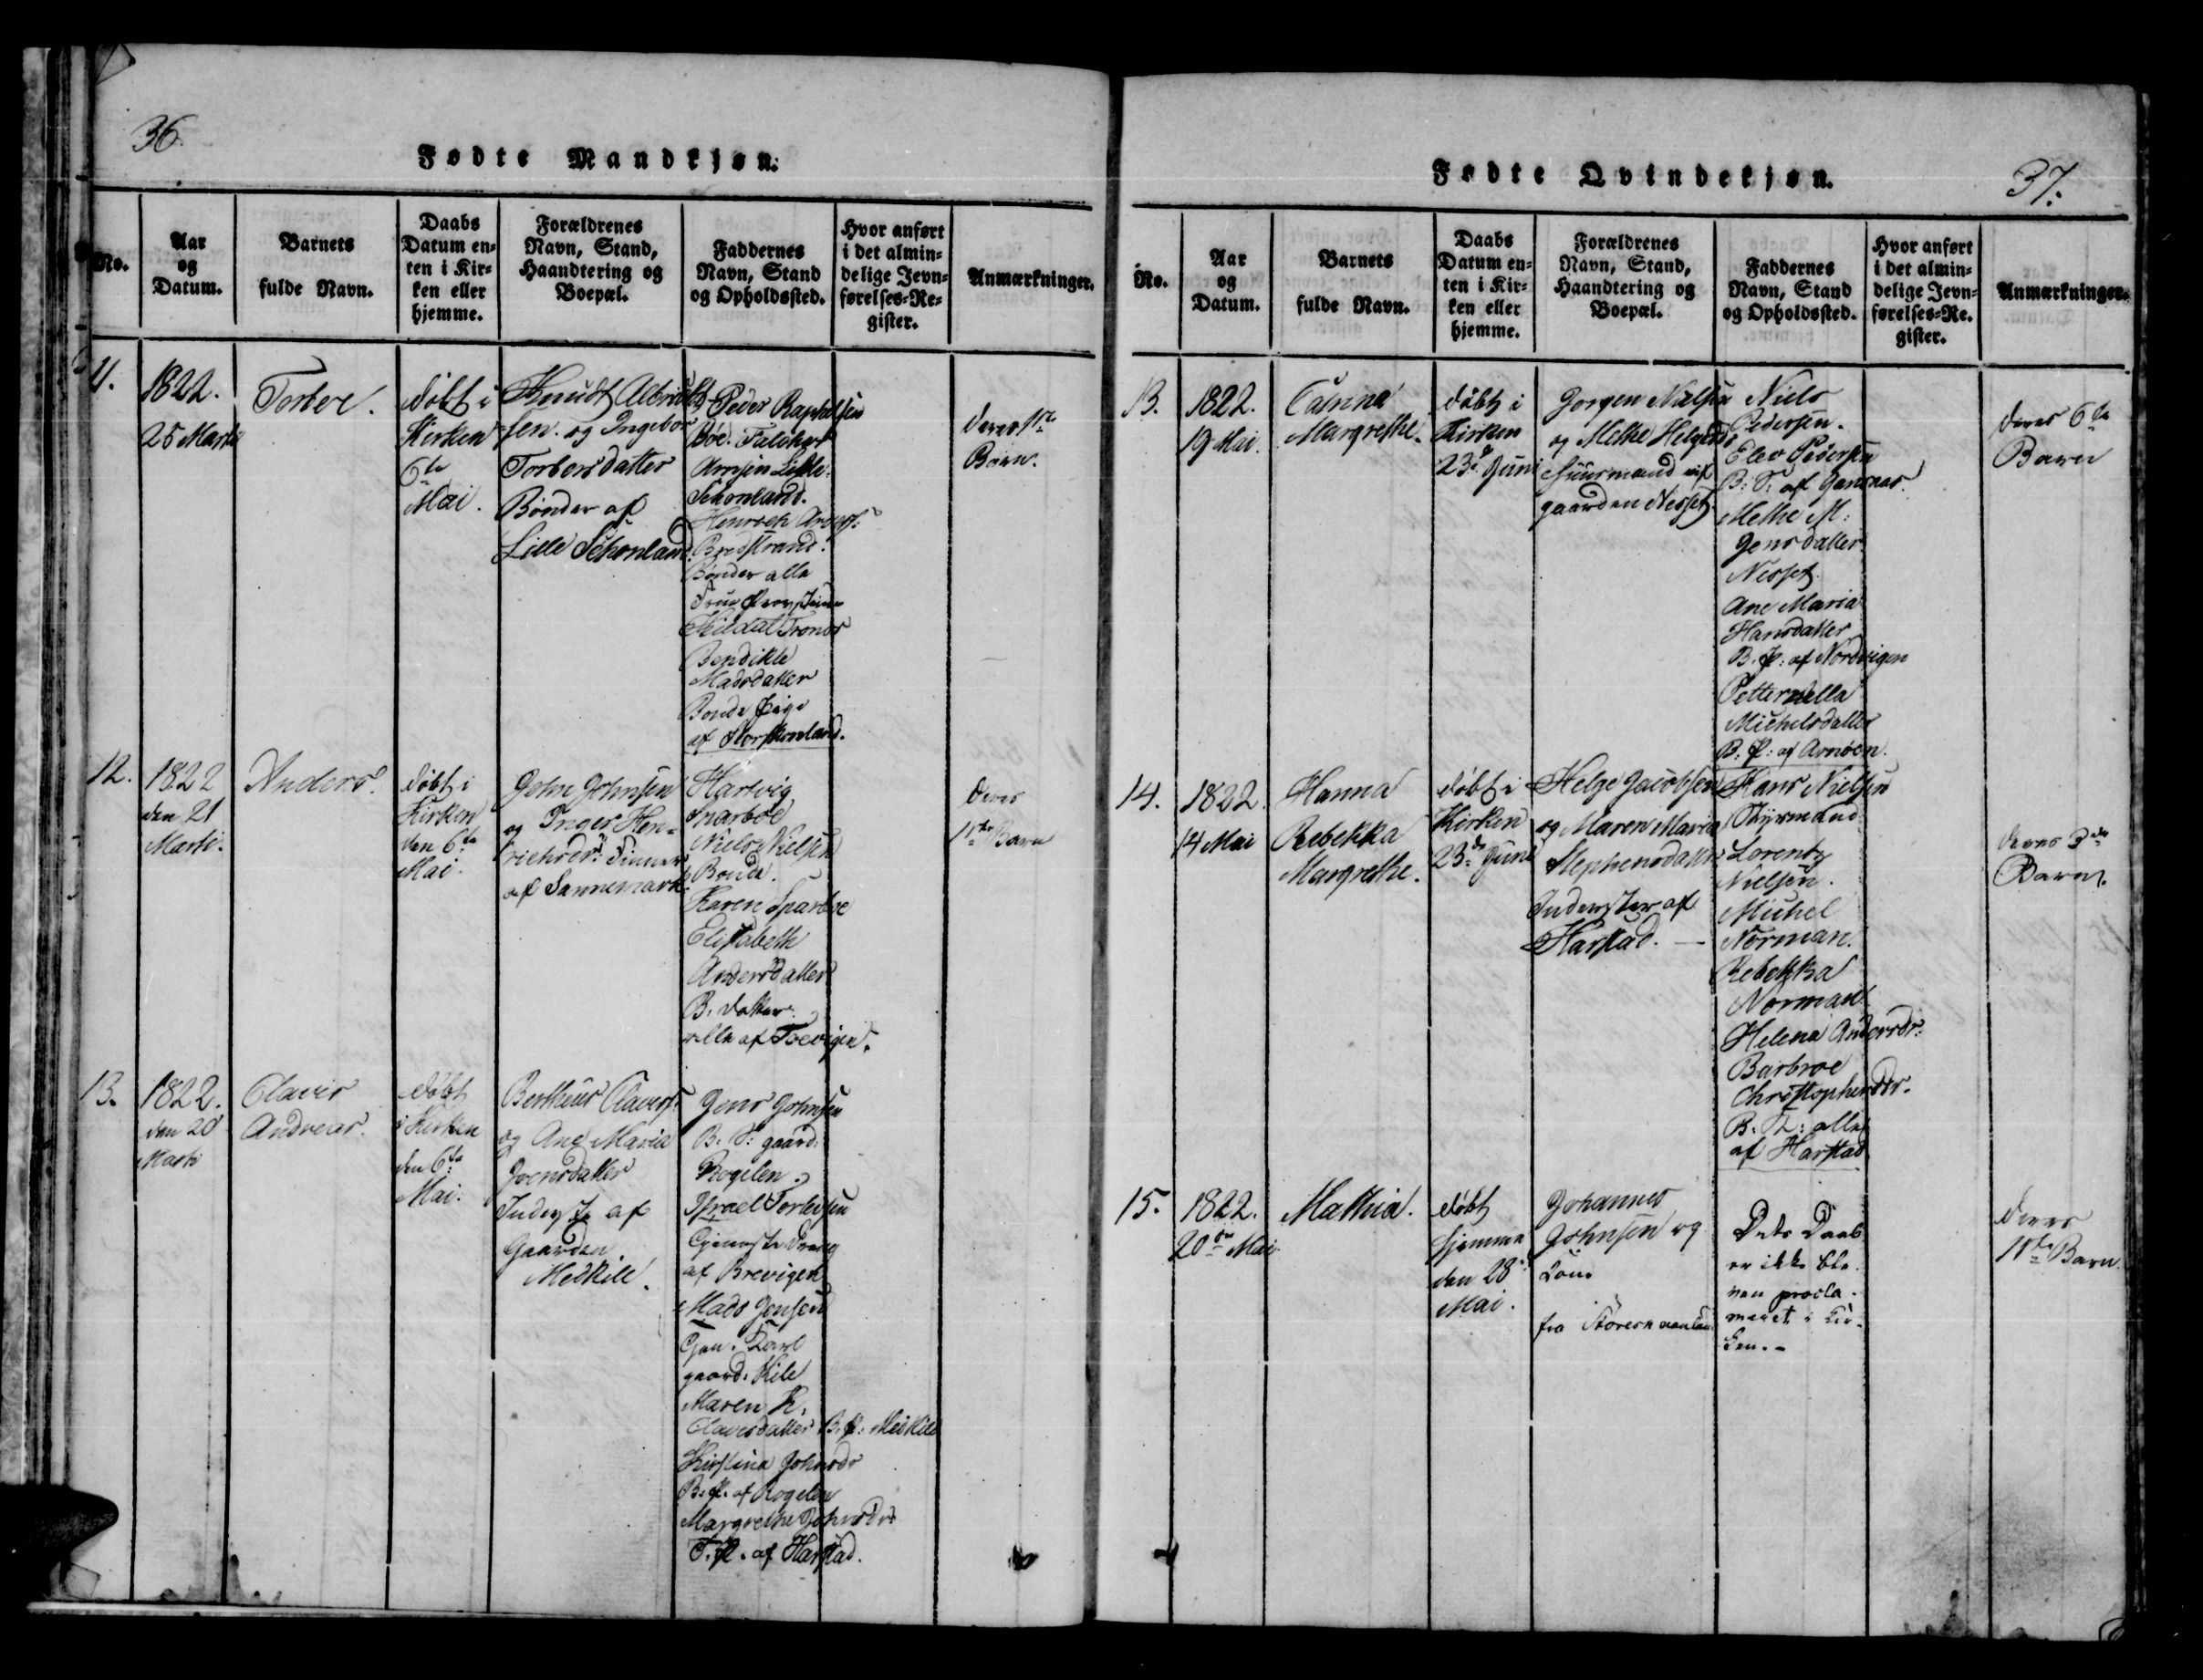 36.
Fødte Mandkjøn.
No.
Aar
og
Datum.
Barnets
fulde Navn.
Daabs
Datum en-
ten i Kir-
ken eller
hjemme.
Forældrenes
Navn, Stand,
Haandtering og
Boepæl.
Faddernes
Navn, Stand
og Opholdssted.
Hvor anført
i det almin-
delige Jevn-
førelses-Re-
gister.
Anmærkninger.
11.
1822.
25 Marti
Torber.
døbt i
Kirken
6te
Mai.
Knudt Albrickt-
sen. og Ingebor
Torbersdatter
Bønder af
Lille Schonland.
Peder
Bøe.
Arnsen Lille
Schonland.
Henrich
Bredstrand.
Bønder alle
Kildal Tronds
Bendikte
Madsdatter
Bonde Pige
af Storskonland.
deres 1te
Barn.
12.
1822
den 21
Marti.
Anders.
døbt i
Kirken
den 6te
Mai.
John Johnsen
og Inger Hen-
richsdr.
af Sannemark
Hartvig
Sparboe
Niels Nielsen
Bonde.
Karen Sparboe
Elisabeth
Andersdatter
B. datter.
alle af Toevigen.
deres
1te Barn
13.
1822.
den 20
Marti
Clavis
Andreas.
døbt
i Kirken
den 6te
Mai.
Bertheus Claves.
og Ane Maria
Joensdatter
Inderste af
Gaarden
Medkile.
Jens Johnsen
B. S: gaard.
Rogelen.
Israel Torbersen
Tjeneste Dreng
af Brevigen
Mads Jensen
Tjen. Karl
gaard. Kile
Maren K.
Clavesdatter B. P: Medkile
Kirstina Johnsdr
B. P. af Rogelen
Margrethe Johnsdr
T. P. af Harstad.
37.
Fødte Qvindekjøn.
No.
Aar
og
Datum.
Barnets
fulde Navn.
Daabs
Datum en-
ten i Kir-
ken eller
hjemme.
Forældrenes
Navn, Stand,
Haandtering og
Boepæl.
Faddernes
Navn, Stand
og Opholdssted.
Hvor anført
i det almin-
delige Jevn-
førelses-Re-
gister.
Anmærkninger.
13.
1822.
19 Mai.
Catrina
Margrethe.
døbt i
Kirken
23de Juni
Jorgen Nielsen
og Methe Helgesdr
Huusmand af
gaarden Nesset
Niels
Pedersen.
Elev Pedersen
B: S: af Gansaas
Methe M:
Jensdatter
Nesset.
Ane Maria
Hansdatter
B. P: af Nordvigen
Petternella
Michelsdatter
B. P: af Arnøen.
deres 6te
Barn
14.
1822.
14 Mai
Hanna
Rebekka
Margrethe.
døbt i
Kirken
23de Juni
Helge Jacobsen
og Maren Maria
Stephensdatter
Inderster af
Harstad. —
Hans Nielsen
Styrmand
Lorentz
Nielsen.
Michel
Norman.
Rebekka
Norman
Helena Andersdr:
Barbroe
Christophersdr.
B. F: alle
af Harstad
deres 3de
Barn.
15.
1822.
20de Mai
Mathia.
døbt
hjemme
den 28
Mai.
Johannes
Johnsen og
Kone
fra
Dets Daab
er ikke ble-
ven procla-
meret i Kir-
ken. -
deres
11te Barn.